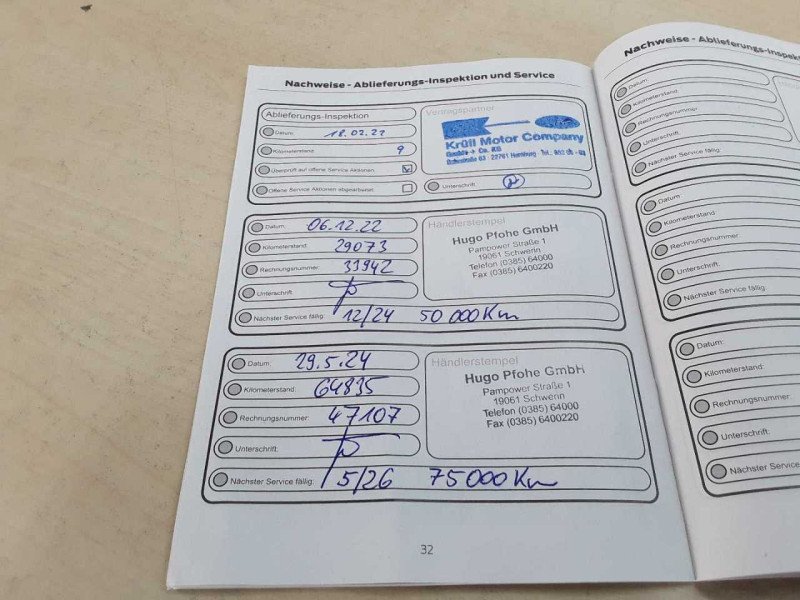 Nachweise - Ablieferungs-Inspektion und Service
Ablieferungs-Inspektion
Datum: 18.02.22
Kilometerstand: 9
Überprüft auf offene Service Aktionen
Offene Service Aktionen abgearbeitet
Vertragspartner
Krüll Motor Company
GmbH + Co. KG
22761 Hamburg
Unterschrift:
Datum: 06.12.22
Kilometerstand: 29073
Rechnungsnummer: 33942
Unterschrift:
Nächster Service fällig: 12/24 50 000 Km
Händlerstempel
Hugo Pfohe GmbH
Pampower Straße 1
19061 Schwerin
Telefon (0385) 64000
Fax (0385) 6400220
Datum: 29.5.24
Kilometerstand: 64835
Rechnungsnummer: 47107
Unterschrift:
Nächster Service fällig: 5/26 75 000 Km
Händlerstempel
Hugo Pfohe GmbH
Pampower Straße 1
19061 Schwerin
Telefon (0385) 64000
Fax (0385) 6400220
32
Nachweise - Ablieferungs-Inspekt
Datum:
Kilometerstand:
Rechnungsnummer:
Unterschrift:
Nächster Service fällig:
Datum:
Kilometerstand:
Rechnungsnummer:
Unterschrift:
Nächster Service fällig:
Datum:
Kilometerstand:
Rechnungsnummer:
Unterschrift:
Nächster Service fällig: